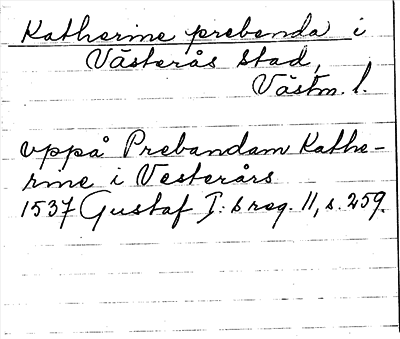 Katherine prebenda i
Västerås stad,
Västm. l.
uppå Prebandam Kathe-
rine i Vesterårs
1537 Gustaf I: s reg. 11, s. 259.